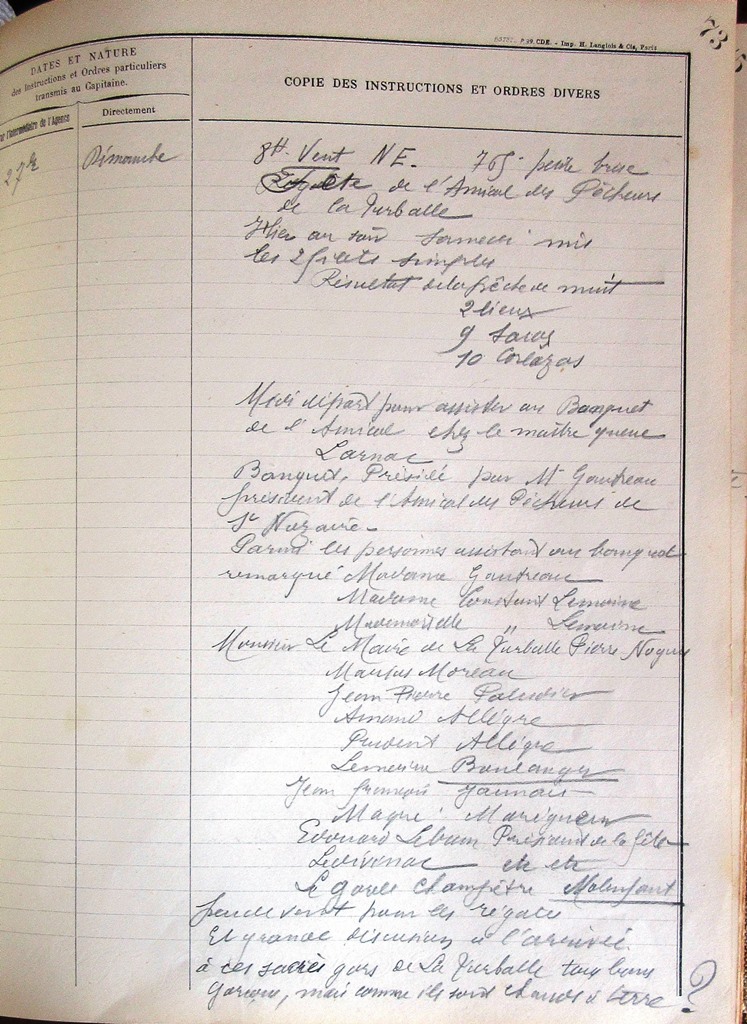 73
Imp. H. Langlois & Cie, Paris
DATES ET NATURE
des Instructions et Ordres particuliers
transmis au Capitaine.
l'Intermédiaire de l'Agence
Directement
COPIE DES INSTRUCTIONS ET ORDRES DIVERS
27
Dimanche
8H. Vent NE. 765 petite brise
Fête de l'Amical des Pêcheurs
de la Turballe
Hier au soir Samedi mis
les 2 filets simples
Résultat de la pêche de nuit
2 lieux
9
10
Midi départ pour assister au Banquet
de l'Amical chez le maître queue
Larnac
Banquet, Présidé par Mr Gautreau
président de l'Amical des Pêcheurs de
St Nazaire -
Parmi les personnes assistant au banquet
remarqué Madame Gautreau
Madame Constant Lemoine
Mademoiselle " Lemoine
Monsieur Le Maire de La Turballe Pierre
Marius Moreau
Jean Pierre Paludier
Amand Allègre
Prudent Allègre
Lemoine Boulanger
Jean François
Magré
Edouard Lebrun Président de la fête
etc etc
Le garde champêtre Malenfant
peu de vent pour les régates
Et grande discussion à l'arrivée
à ces sacrés gars de La Turballe tous bons
garçons, mais comme ils sont chauds à terre ?